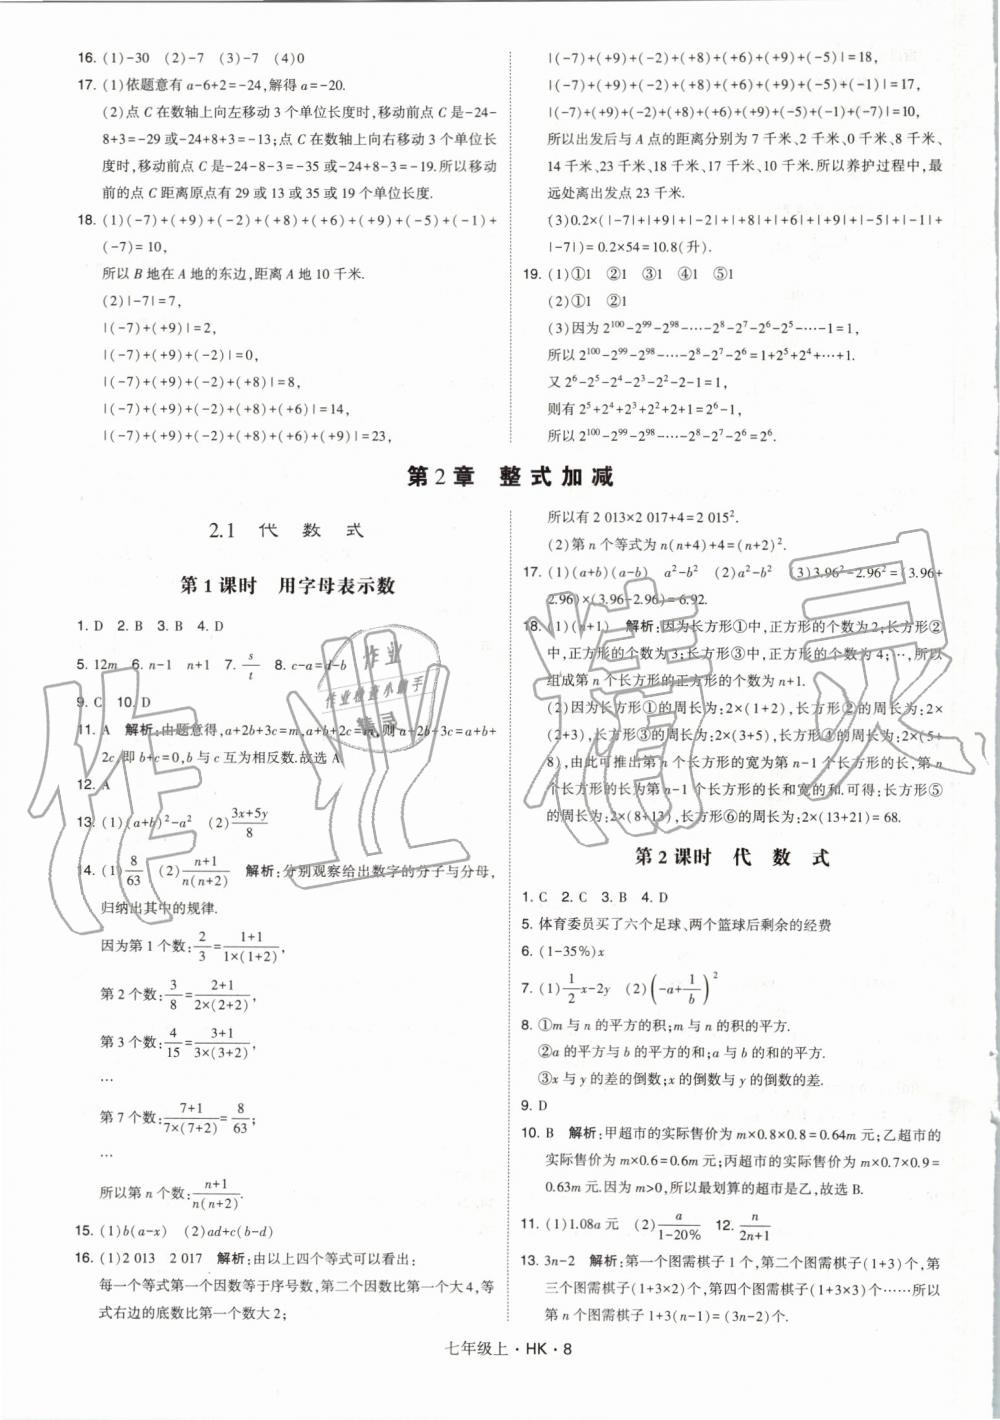 16. (1)-30　(2)-7　(3)-7　(4)0
17. (1)依题意有 a-6+2=-24,解得 a=-20.
(2)点 C 在数轴上向左移动 3 个单位长度时,移动前点 C 是-24-
8+3=-29 或-24+8+3=-13;点 C 在数轴上向右移动 3 个单位长
度时,移动前点 C 是-24-8-3=-35 或-24+8-3=-19.所以移动
前的点 C 距离原点有 29 或 13 或 35 或 19 个单位长度.
18. (1)(-7)+(+9)+(-2)+(+8)+(+6)+(+9)+(-5)+(-1)+
(-7)=10,
所以 B 地在 A 地的东边,距离 A 地 10 千米.
(2)|-7|=7,
|(-7)+(+9)|=2,
|(-7)+(+9)+(-2)|=0,
|(-7)+(+9)+(-2)+(+8)|=8,
|(-7)+(+9)+(-2)+(+8)+(+6)|=14,
|(-7)+(+9)+(-2)+(+8)+(+6)+(+9)|=23,
|(-7)+(+9)+(-2)+(+8)+(+6)+(+9)+(-5)|=18,
|(-7)+(+9)+(-2)+(+8)+(+6)+(+9)+(-5)+(-1)|=17,
|(-7)+(+9)+(-2)+(+8)+(+6)+(+9)+(-5)+(-1)+(-7)|=10,
所以出发后与 A 点的距离分别为 7 千米、2 千米、0 千米、8 千米、
14 千米、23 千米、18 千米、17 千米、10 千米.所以养护过程中,最
远处离出发点 23 千米.
(3)0.2×(|-7|+|+9|+|-2|+|+8|+|+6|+|+9|+|-5|+|-1|+
|-7|)=0.2×54=10.8(升).
19. (1)①1　②1　③1　④1　⑤1
(2)①1　②1
(3)因为 2¹⁰⁰-2⁹⁹-2⁹⁸-…-2⁸-2⁷-2⁶-2⁵-…-1=1,
所以 2¹⁰⁰-2⁹⁹-2⁹⁸-…-2⁸-2⁷-2⁶=1+2⁵+2⁴+…+1.
又 2⁶-2⁵-2⁴-2³-2²-2-1=1,
则有 2⁵+2⁴+2³+2²+2+1=2⁶-1,
所以 2¹⁰⁰-2⁹⁹-2⁹⁸-…-2⁸-2⁷-2⁶=2⁶.
第 2 章　整式加减
2.1　代 数 式
第 1 课时　用字母表示数
1. D　2. B　3. B　4. D
5. 12m　6. n-1　n+1　7. s/t　8. c-a=d-b
9. C　10. D
11. A　解析:由题意得,a+2b+3c=m,a+b+2c=m,则 a+2b+3c=a+b+
2c,即 b+c=0,b 与 c 互为相反数.故选 A.
12. A
13. (1)(a+b)²-a²　(2)(3x+5y)/8
14. (1)8/63　(2)(n+1)/(n(n+2))　解析:分别观察给出数字的分子与分母,
归纳出其中的规律.
因为第 1 个数:2/3=(1+1)/(1×(1+2)),
第 2 个数:3/8=(2+1)/(2×(2+2)),
第 3 个数:4/15=(3+1)/(3×(3+2)),
…
第 7 个数:(7+1)/(7×(7+2))=8/63;
…
所以第 n 个数:(n+1)/(n(n+2)).
15. (1)b(a-x)　(2)ad+c(b-d)
16. (1)2 013　2 017　解析:由以上四个等式可以看出:
每一个等式第一个因数等于序号数,第二个因数比第一个大 4,等
式右边的底数比第一个数大 2;
所以有 2 013×2 017+4=2 015².
(2)第 n 个等式为 n(n+4)+4=(n+2)².
17. (1)(a+b)(a-b)　a²-b²　(2)a²-b²　(3)3.96²-2.96²=(3.96+
2.96)×(3.96-2.96)=6.92.
18. (1)(n+1)　解析:因为长方形①中,正方形的个数为 2;长方形②
中,正方形的个数为 3;长方形③中,正方形的个数为 4;…,所以
组成第 n 个长方形的正方形的个数为 n+1.
(2)因为长方形①的周长为:2×(1+2),长方形②的周长为:2×
(2+3),长方形③的周长为:2×(3+5),长方形④的周长为:2×(5+
8),由此可推出第 n 个长方形的宽为第 n-1 个长方形的长,第 n
个长方形的长为第 n-1 个长方形的长和宽的和.可得:长方形⑤
的周长为:2×(8+13),长方形⑥的周长为:2×(13+21)=68.
第 2 课时　代 数 式
1. C　2. C　3. B　4. D
5. 体育委员买了六个足球、两个篮球后剩余的经费
6. (1-35%)x
7. (1)1/2x-2y　(2)(-a+1/b)²
8. ①m 与 n 的平方的积;m 与 n 的积的平方.
②a 的平方与 b 的平方的和;a 与 b 的和的平方.
③x 与 y 的差的倒数;x 的倒数与 y 的倒数的差.
9. D
10. B　解析:甲超市的实际售价为 m×0.8×0.8=0.64m 元;乙超市的
实际售价为 m×0.6=0.6m 元;丙超市的实际售价为 m×0.7×0.9=
0.63m 元.因为 m>0,所以最划算的超市是乙,故选 B.
11. (1)1.08a 元　(2)a/(1-20%)　12. n/(2n+1)
13. 3n-2　解析:第一个图需棋子 1 个,第二个图需棋子(1+3)个,第
三个图需棋子(1+3×2)个,第四个图需棋子(1+3×3)个……所以
第 n 个图需棋子 1+3(n-1)=(3n-2)个.
七年级上·HK·8
作业精灵
作业
作业检查小助手
精灵